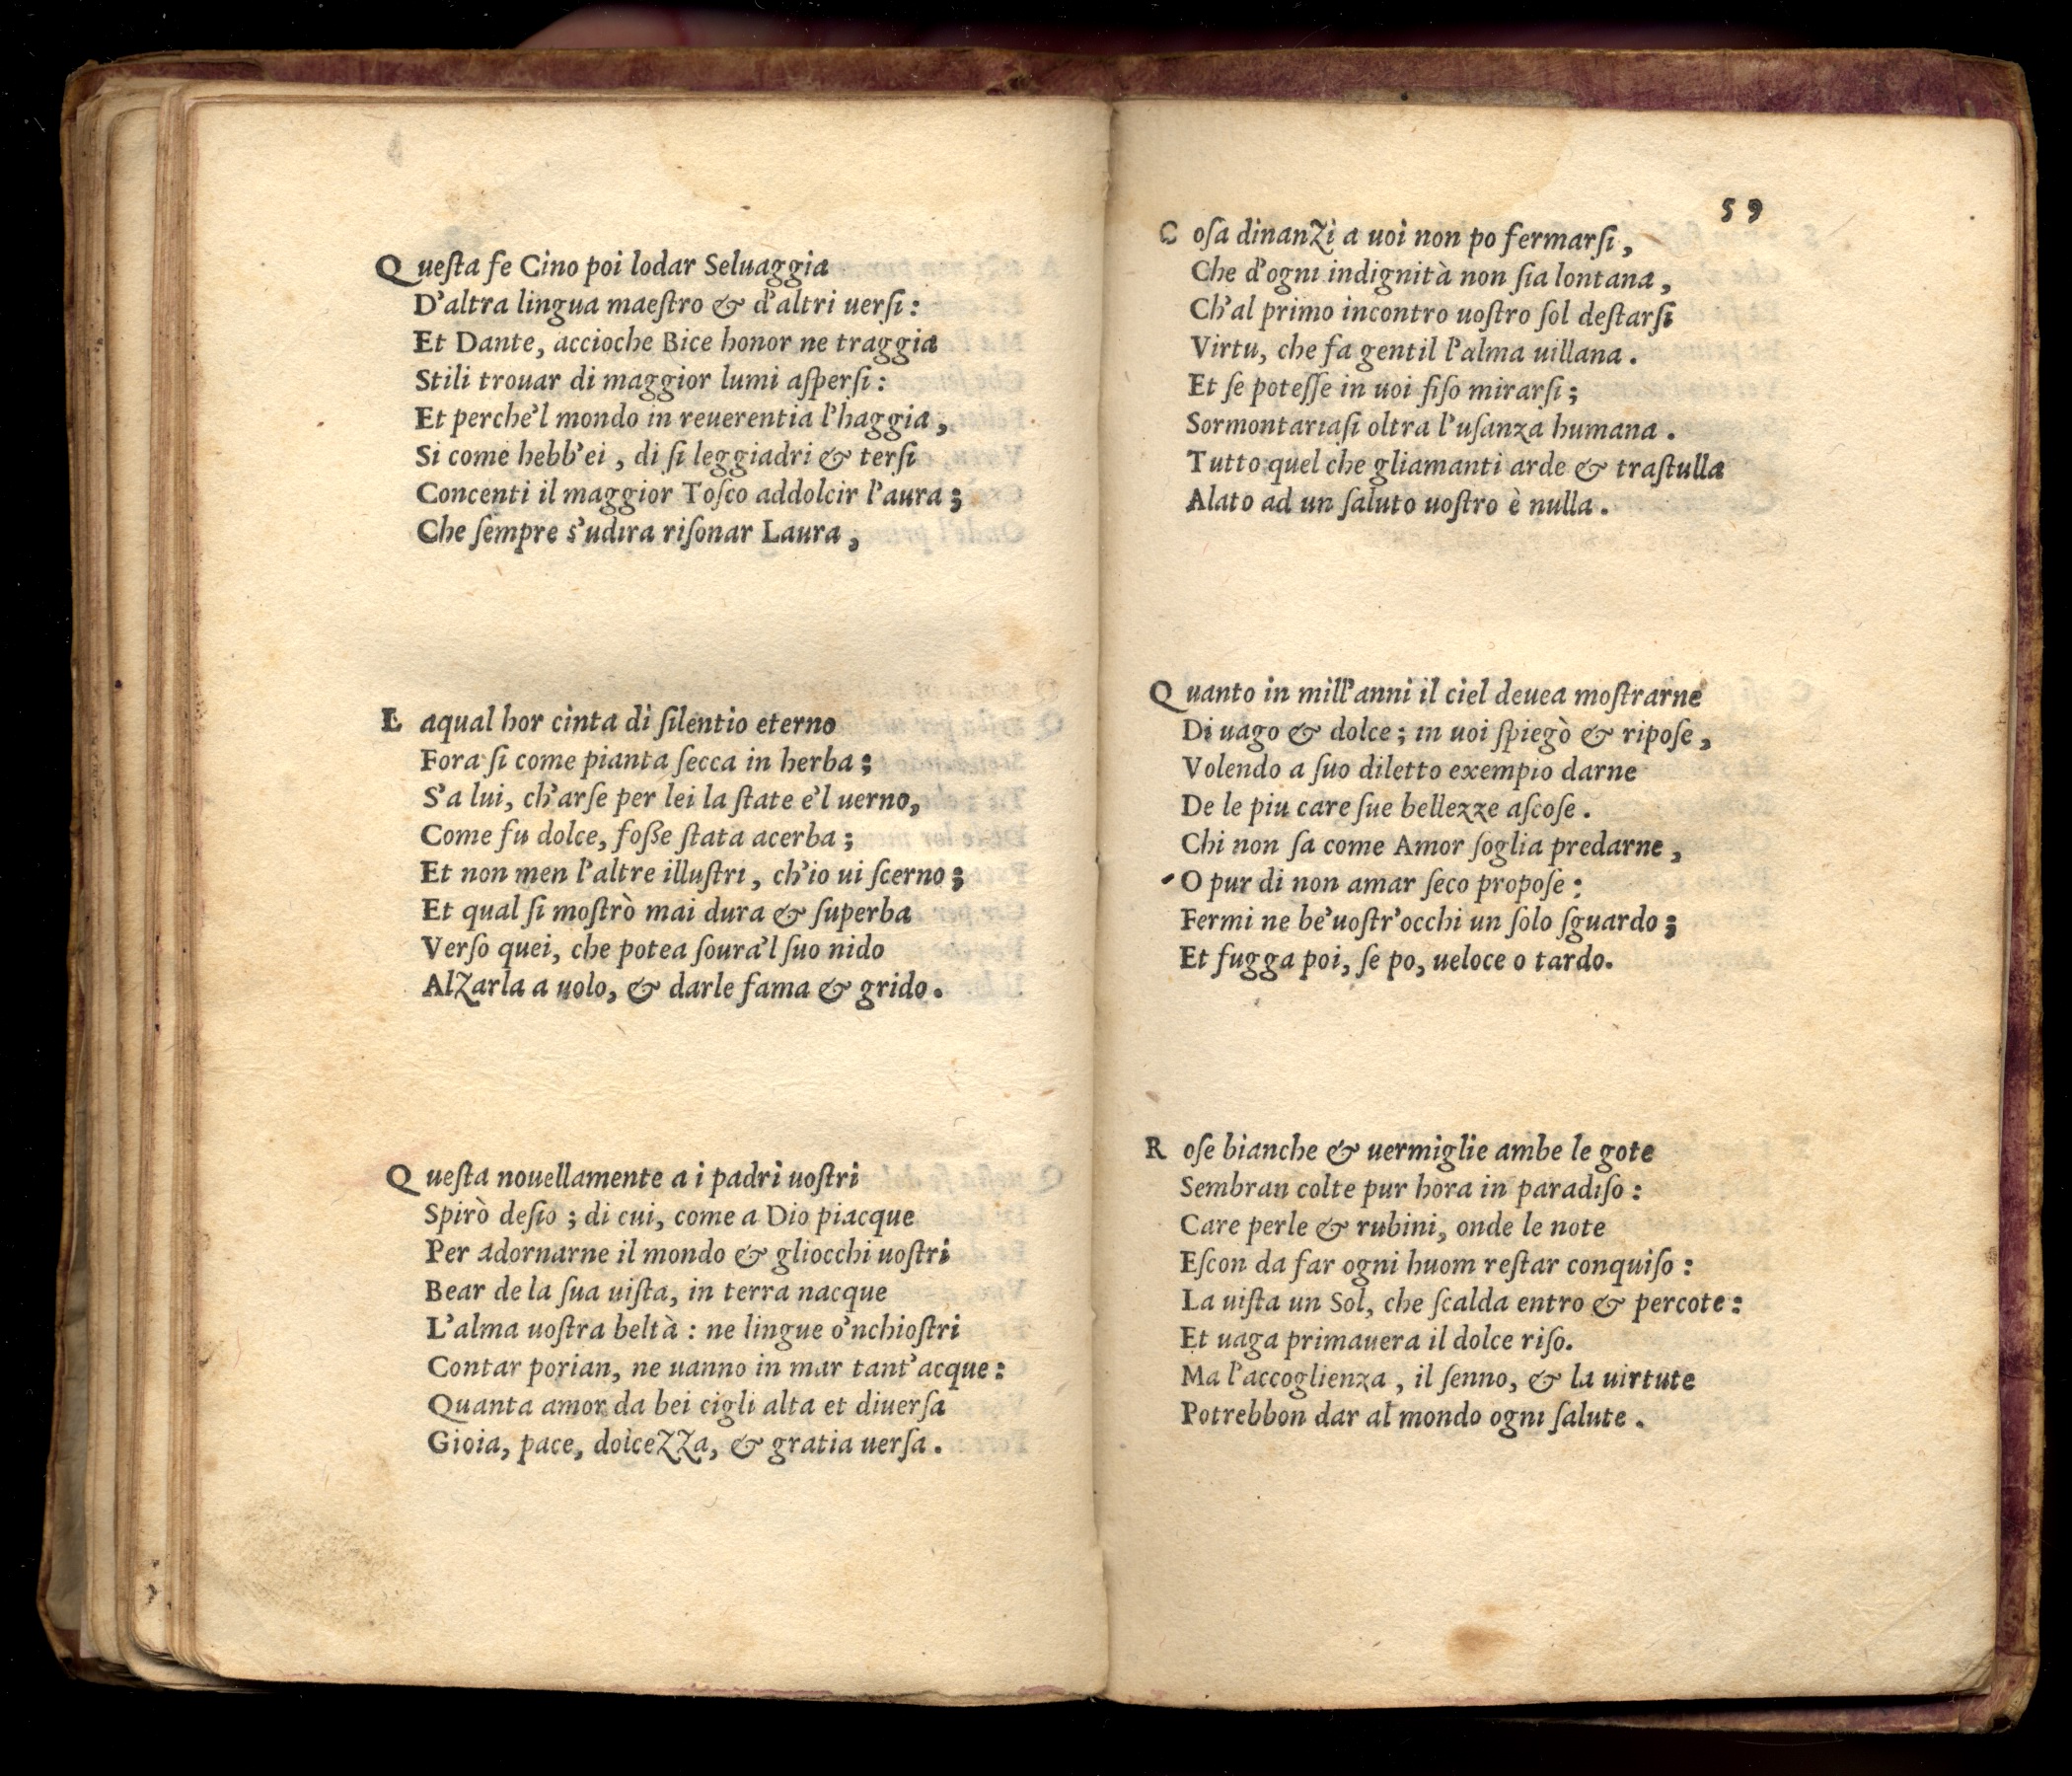 Queſta fe Cino poi lodar Seluaggia
D'altra lingua maeſtro & d'altri uerſi:
Et Dante, accioche Bice honor ne traggia
Stili trouar di maggior lumi aſperſi:
Et perche'l mondo in reuerentia l'haggia,
Si come hebb'ei, di ſi leggiadri & terſi
Concenti il maggior Toſco addolcir l'aura;
Che ſempre s'udira riſonar Laura,
Laqual hor cinta di ſilentio eterno
Fora ſi come pianta ſecca in herba;
S'a lui, ch'arſe per lei la ſtate e'l uerno,
Come fu dolce, foße ſtata acerba;
Et non men l'altre illuſtri, ch'io ui ſcerno;
Et qual ſi moſtrò mai dura & ſuperba
Verſo quei, che potea ſoura'l ſuo nido
Alzarla a uolo, & darle fama & grido.
Queſta nouellamente a i padri uoſtri
Spirò deſio; di cui, come a Dio piacque
Per adornarne il mondo & gliocchi uoſtri
Bear de la ſua uiſta, in terra nacque
L'alma uoſtra beltà: ne lingue o'nchioſtri
Contar porian, ne uanno in mar tant'acque:
Quanta amor da bei cigli alta et diuerſa
Gioia, pace, dolcezza, & gratia uerſa.
59
Coſa dinanzi a uoi non po fermarſi,
Che d'ogni indignità non ſia lontana,
Ch'al primo incontro uoſtro ſol deſtarſi
Virtu, che fa gentil l'alma uillana.
Et ſe poteſſe in uoi fiſo mirarſi;
Sormontariaſi oltra l'uſanza humana.
Tutto quel che gliamanti arde & traſtulla
Alato ad un ſaluto uoſtro è nulla.
Quanto in mill'anni il ciel deuea moſtrarne
Di uago & dolce; in uoi ſpiegò & ripoſe,
Volendo a ſuo diletto exempio darne
De le piu care ſue bellezze aſcoſe.
Chi non ſa come Amor ſoglia predarne,
O pur di non amar ſeco propoſe:
Fermi ne be'uoſtr'occhi un ſolo ſguardo;
Et fugga poi, ſe po, ueloce o tardo.
Roſe bianche & uermiglie ambe le gote
Sembran colte pur hora in paradiſo:
Care perle & rubini, onde le note
Eſcon da far ogni huom reſtar conquiſo:
La uiſta un Sol, che ſcalda entro & percote:
Et uaga primauera il dolce riſo.
Ma l'accoglienza, il ſenno, & la uirtute
Potrebbon dar al mondo ogni ſalute.